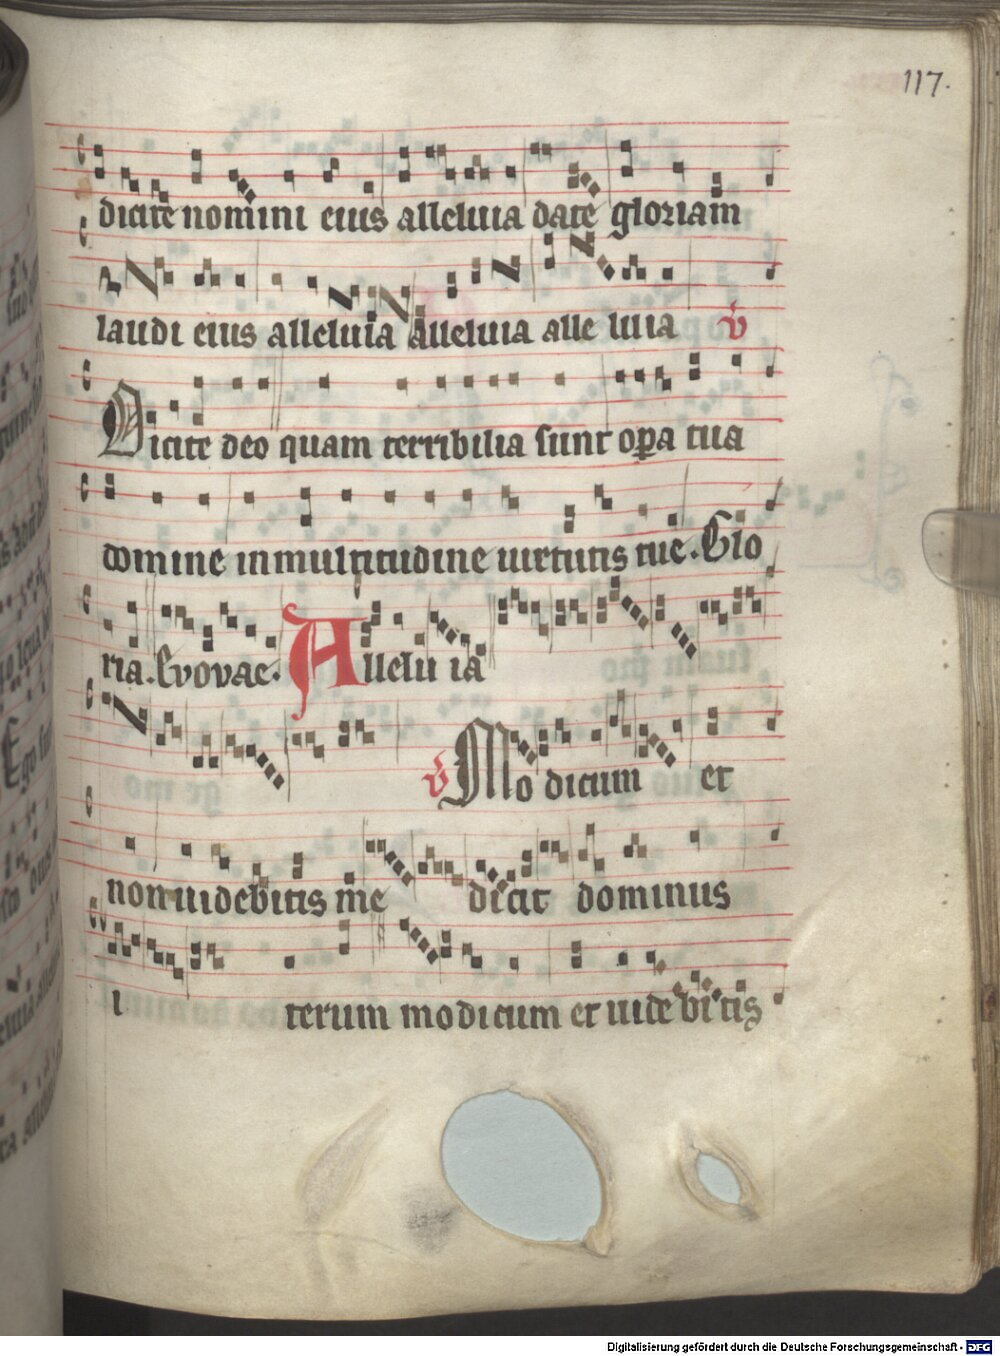 117.
dicite nomini eius alleluia date gloriam
laudi eius alleluia alleluia alle luia v
Dicite deo quam terribilia sunt opa tua
domine in multitudine uirtutis tue. Glo
ria. Evovae. Allelu ia
v Mo dicum et
non uidebitis me dicit dominus
i terum modicum et uide bi tis
Digitalisierung gefördert durch die Deutsche Forschungsgemeinschaft - DFG